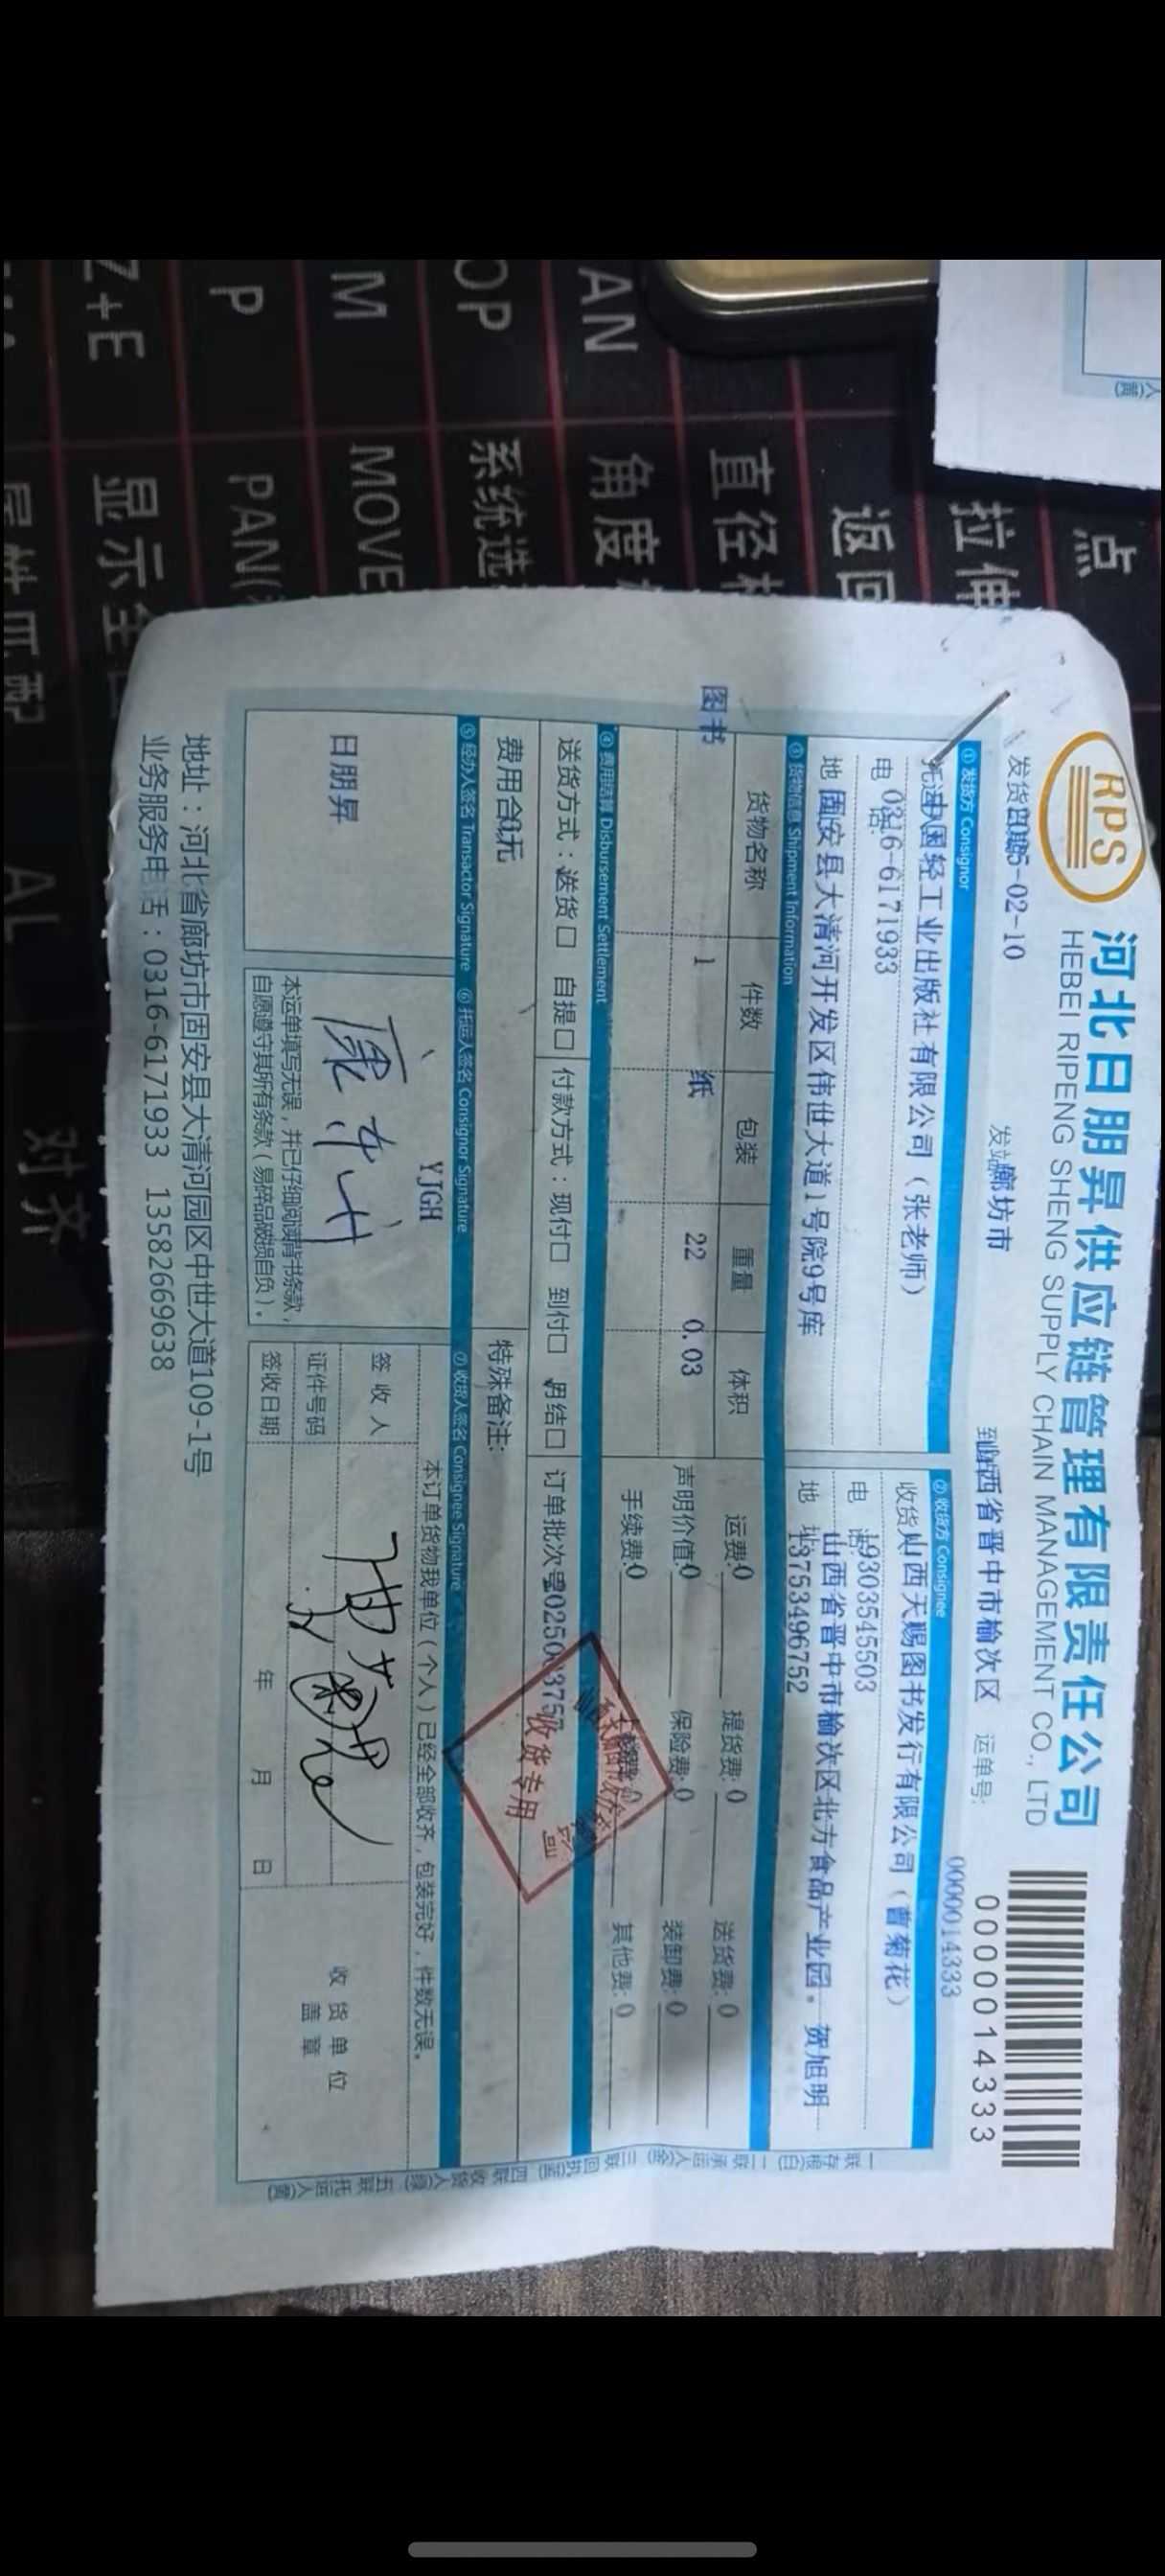 RPS
河北日朋昇供应链管理有限责任公司
HEBEI RIPENG SHENG SUPPLY CHAIN MANAGEMENT CO., LTD
0000014333
-02-10
发站 廊坊市
山西省晋中市榆次区
运单号:
0000014333
① 发货方 Consignor
中国轻工业出版社有限公司（张老师）
电 0316-6171933
地 固安县大清河开发区伟世大道1号院9号库
② 收货方 Consignee
收货 山西天赐图书发行有限公司（曹菊花）
电 19303545503
地 山西省晋中市榆次区北方食品产业园。贺旭明
13753496752
③ 货物信息 Shipment Information
货物名称 件数 包装 重量 体积
图书 1 纸 22 0.03
运费:0 提货费:0 送货费:0
声明价值:0 保险费:0 装卸费:0
手续费:0 其他费:0
④ 费用结算 Disbursement Settlement
送货方式：送货口 自提口 付款方式：现付口 到付口 月结口 订单批次号
收货专用
费用合 无
特殊备注:
⑤ 经办人签名 Transactor Signature ⑥ 托运人签名 Consignor Signature ⑦ 收货人签名 Consignee Signature
YJGH
日朋昇
本订单货物我单位（个人）已经全部收齐，包装完好，件数无误。
签 收 人
证件号码
签收日期 年 月 日
收 货 单 位
盖 章
本运单填写无误，并已仔细阅读背书条款，
自愿遵守其所有条款（易碎品破损自负）。
地址：河北省廊坊市固安县大清河园区中世大道109-1号
业务服务电话：0316-6171933 13582669638
一联存根(白) 二联承运人(金) 三联回执(蓝) 四联收货人(绿) 五联托运人(黄)
点
拉伸
返回
直径
AN
角度
OP
系统选
M
MOVE
P
PAN(
Z+E
显示全
AL
对齐